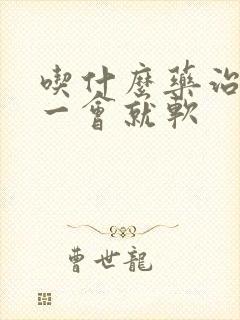 喫什麼藥治
一會就軟
曹世龍